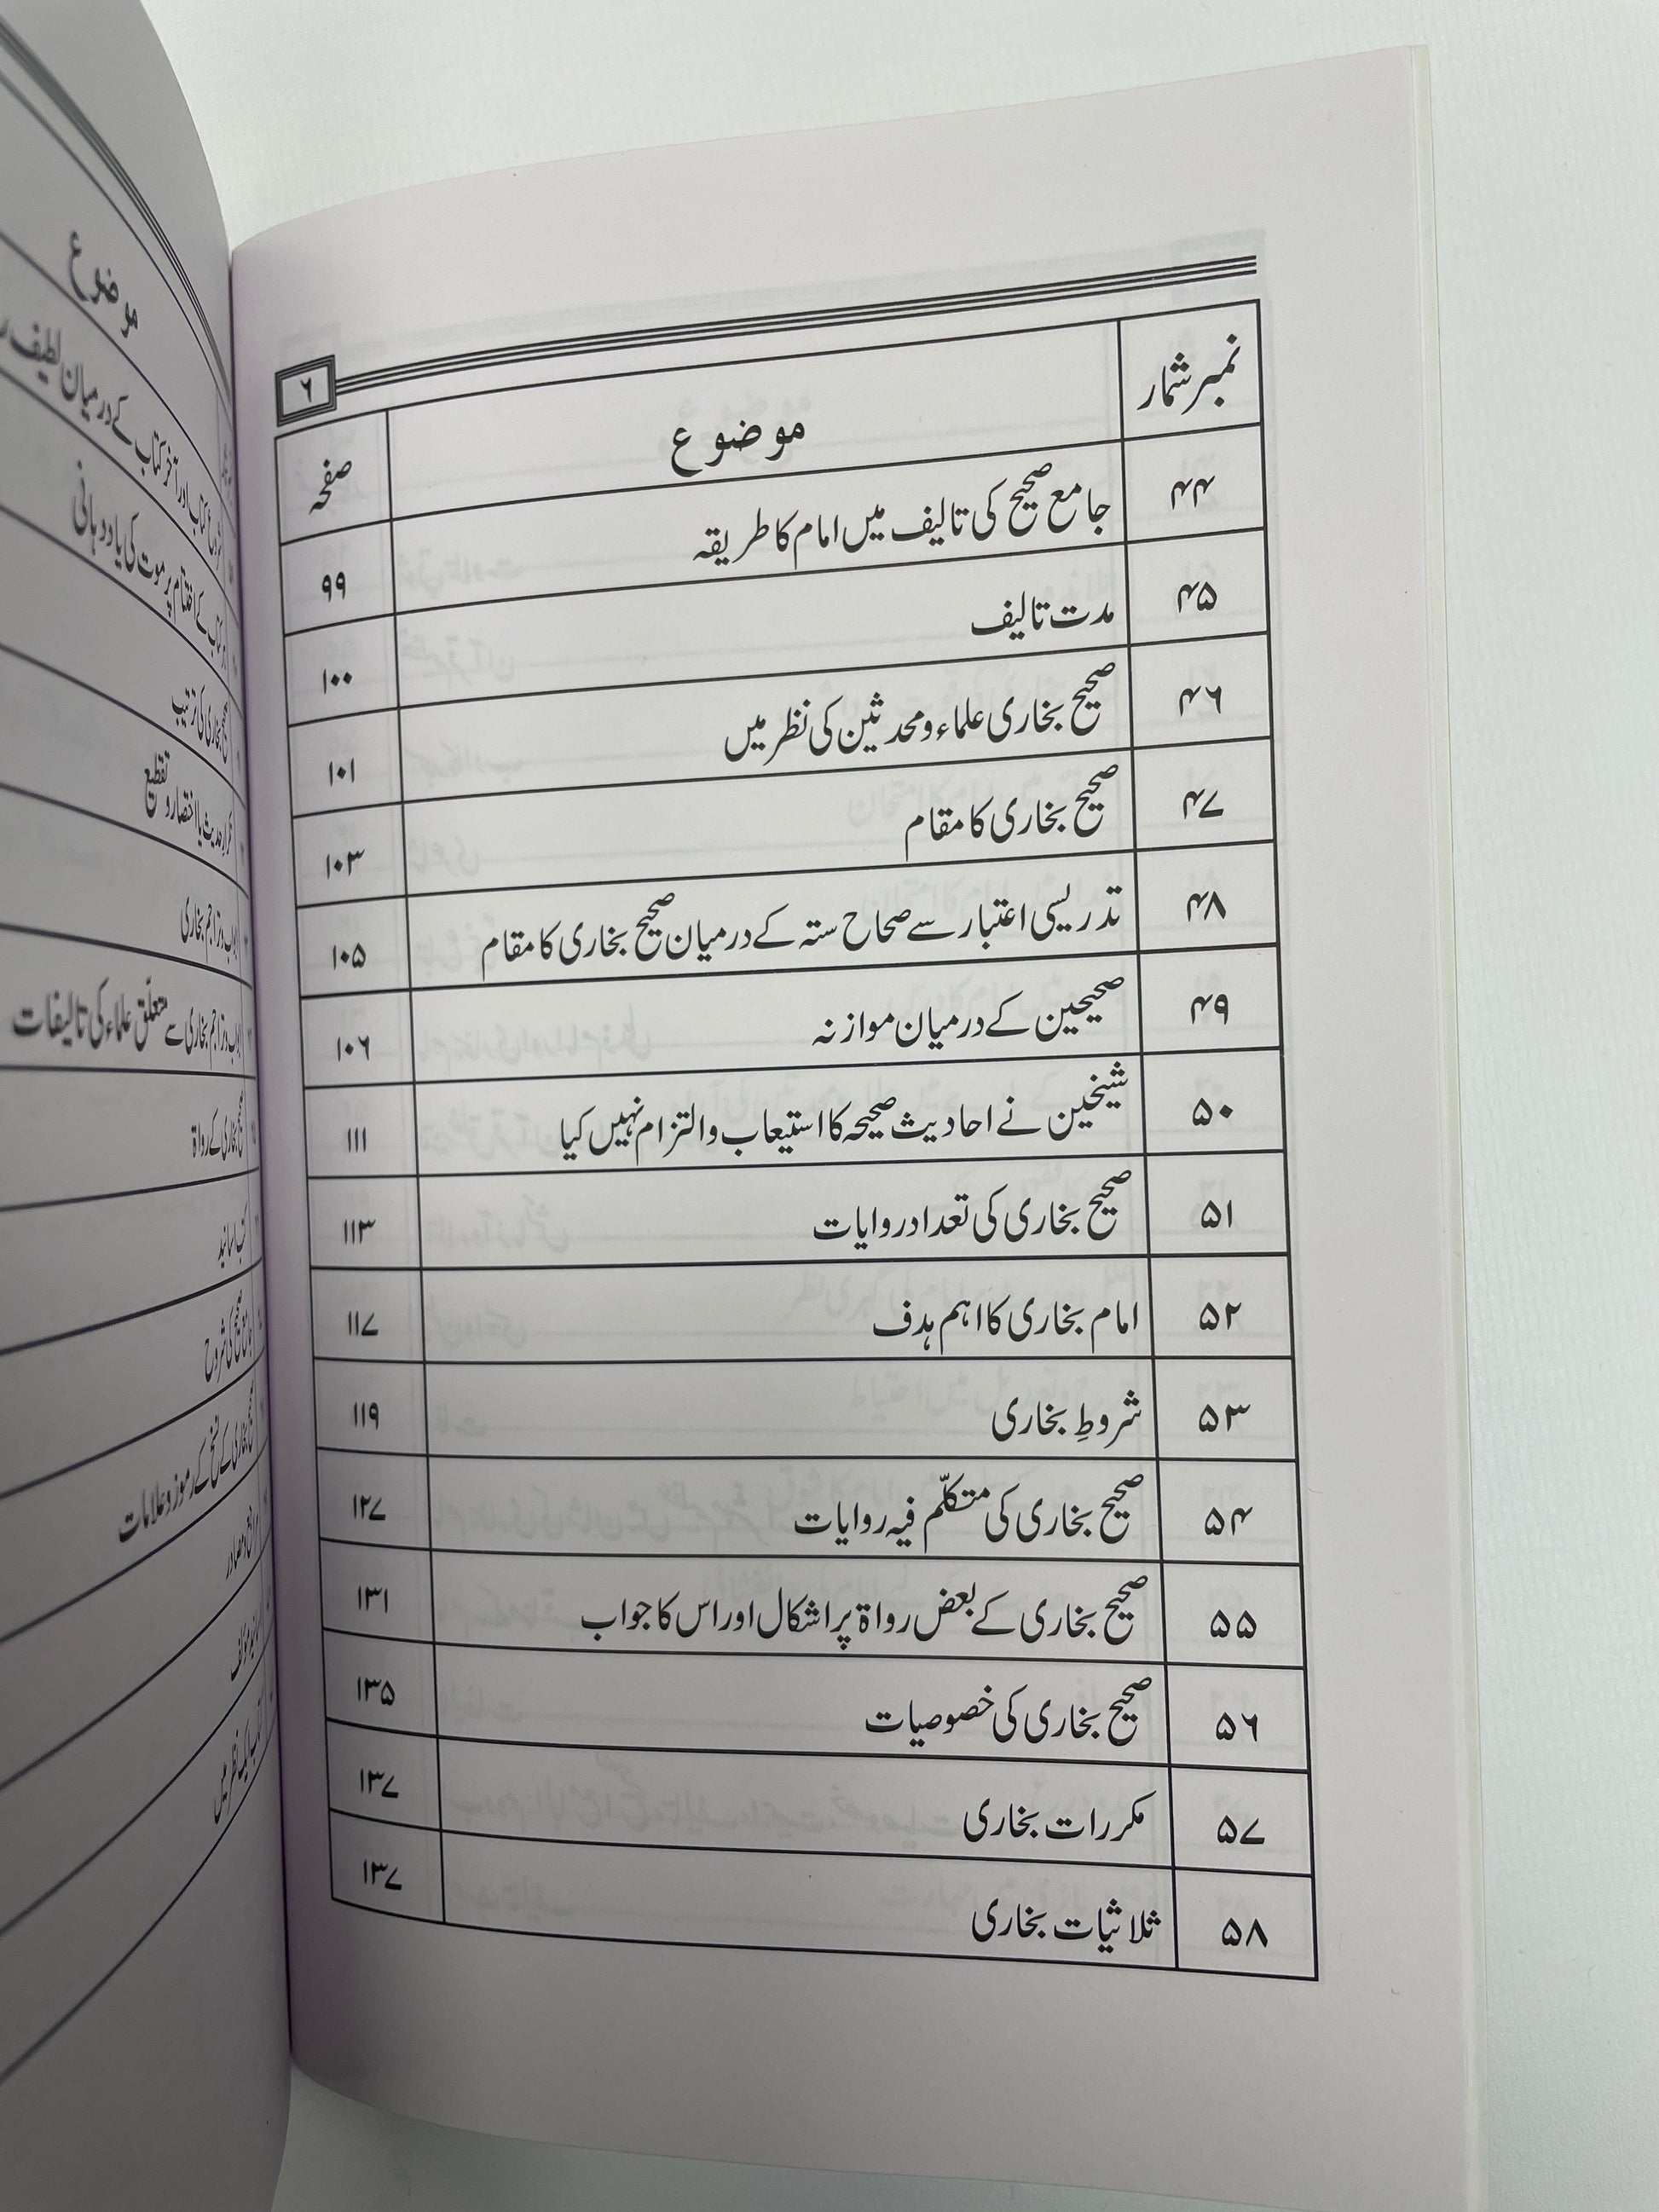 ۶
نمبر شمار موضوع صفحہ
۴۴ جامع صحیح کی تالیف میں امام کا طریقہ ۹۹
۴۵ مدت تالیف ۱۰۰
۴۶ صحیح بخاری علماء و محدثین کی نظر میں ۱۰۱
۴۷ صحیح بخاری کا مقام ۱۰۳
۴۸ تدریسی اعتبار سے صحاح ستہ کے درمیان صحیح بخاری کا مقام ۱۰۵
۴۹ صحیحین کے درمیان موازنہ ۱۰۶
۵۰ شیخین نے احادیث صحیحہ کا استیعاب والتزام نہیں کیا ۱۱۱
۵۱ صحیح بخاری کی تعداد روایات ۱۱۳
۵۲ امام بخاری کا اہم ہدف ۱۱۷
۵۳ شروطِ بخاری ۱۱۹
۵۴ صحیح بخاری کی متکلّم فیہ روایات ۱۲۷
۵۵ صحیح بخاری کے بعض رواۃ پر اشکال اور اس کا جواب ۱۳۱
۵۶ صحیح بخاری کی خصوصیات ۱۳۵
۵۷ مکررات بخاری ۱۳۷
۵۸ ثلاثیات بخاری ۱۳۷
موضوع
کتاب اور آخر کتاب کے درمیان لطیف
کتاب کے اختتام پر موت کی یاد دہانی
صحیح بخاری کی ترتیب
تکرار حدیث یا اختصار و تقطیع
ابواب و تراجم بخاری
ابواب و تراجم بخاری سے متعلّق علماء کی تالیفات
صحیح بخاری کے رواۃ
کتب اسانید
جامع صحیح کی شروح
صحیح بخاری کے نسخ کے رموز و علامات